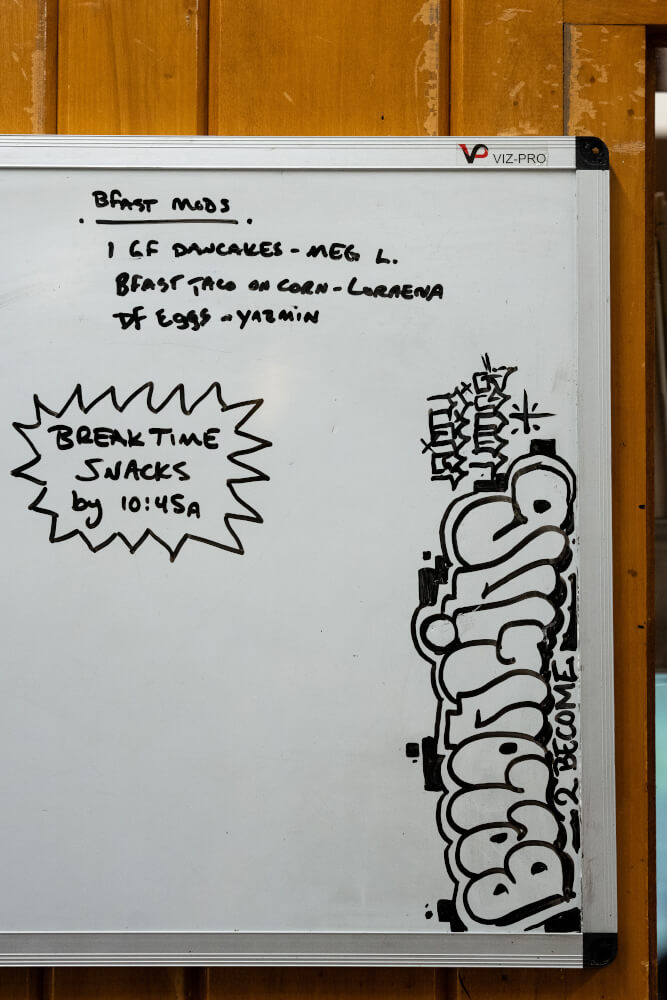 VP VIZ-PRO
BFAST MODS
1 GF PANCAKES - MEG L.
BFAST TACO ON CORN - LORRENA
DF EGGS - YAZMIN
BREAK TIME
SNACKS
by 10:45A
2 BECOME